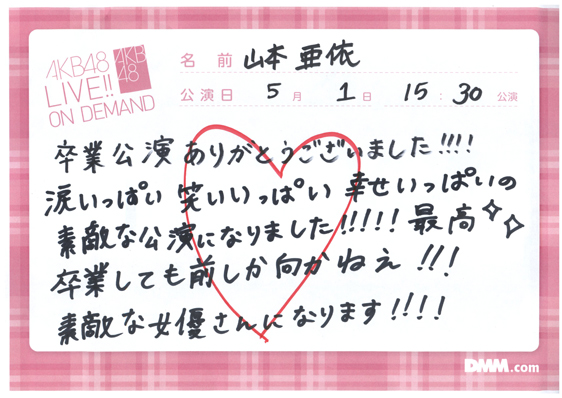 AKB48
LIVE!!
ON DEMAND
AKB
48
名 前 山本 亜依
公演日 5月 1日 15:30 公演
卒業公演ありがとうございました!!!!
涙いっぱい 笑いいっぱい 幸せいっぱいの
素敵な公演になりました!!!!! 最高✧✧
卒業しても前しか向かねえ!!!
素敵な女優さんになります!!!!
DMM.com